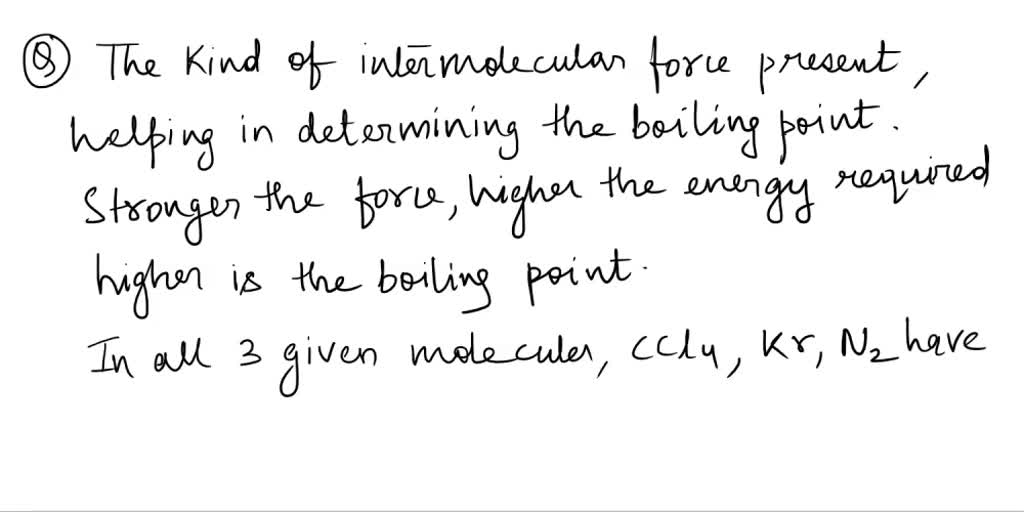 Q The Kind of intermolecular force present,
helping in determining the boiling point.
Stronger the force, higher the energy required
higher is the boiling point.
In all 3 given molecules, CCl4, Kr, N2 have